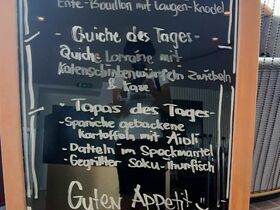 Ente-Bouillon mit Laugen-Knödel
-Quiche des Tages-
Quiche Lorraine mit
Katenschinkenwürfeln Zwiebeln
& Käse
-Tapas des Tages-
-Spanische gebackene
Kartoffeln mit Aioli
-Datteln im Speckmantel
-Gegrillter Saku-Thunfisch
Guten Appetit